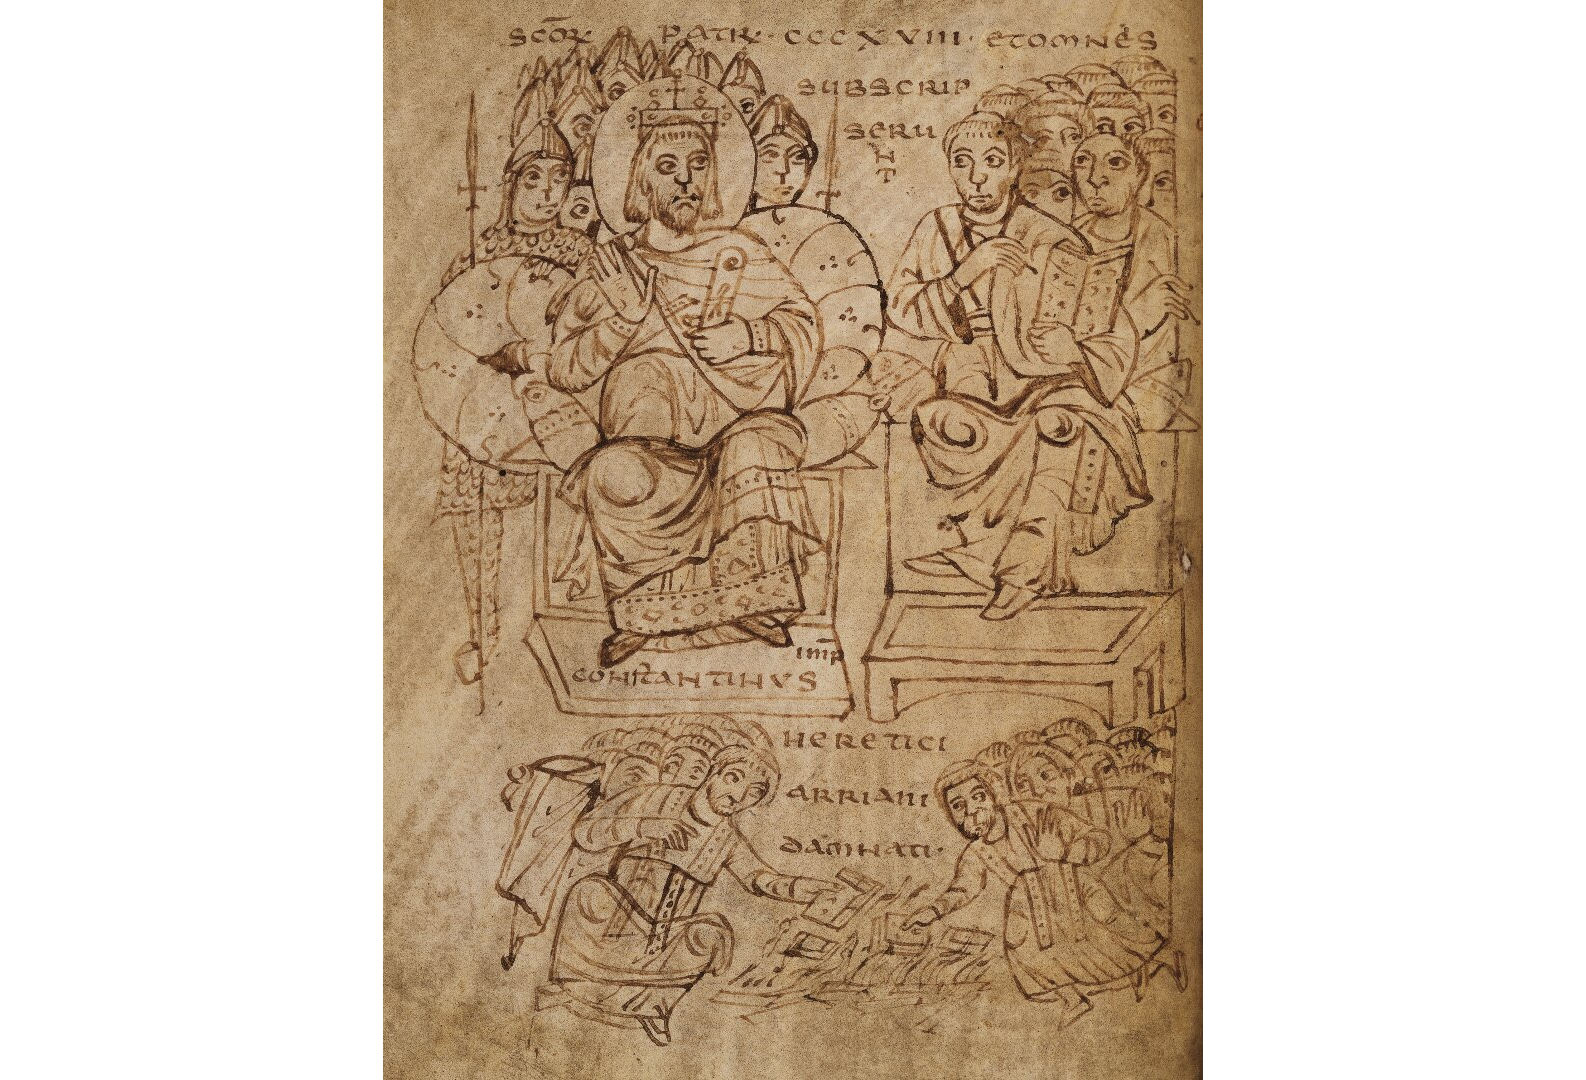 SCŌR PATR · CCCXVIII · ET OMNES
SUBSCRIP
SERU
N
T
IMP̄
CONSTANTINVS
HERETICI
ARRIANI
DAMNATI ·